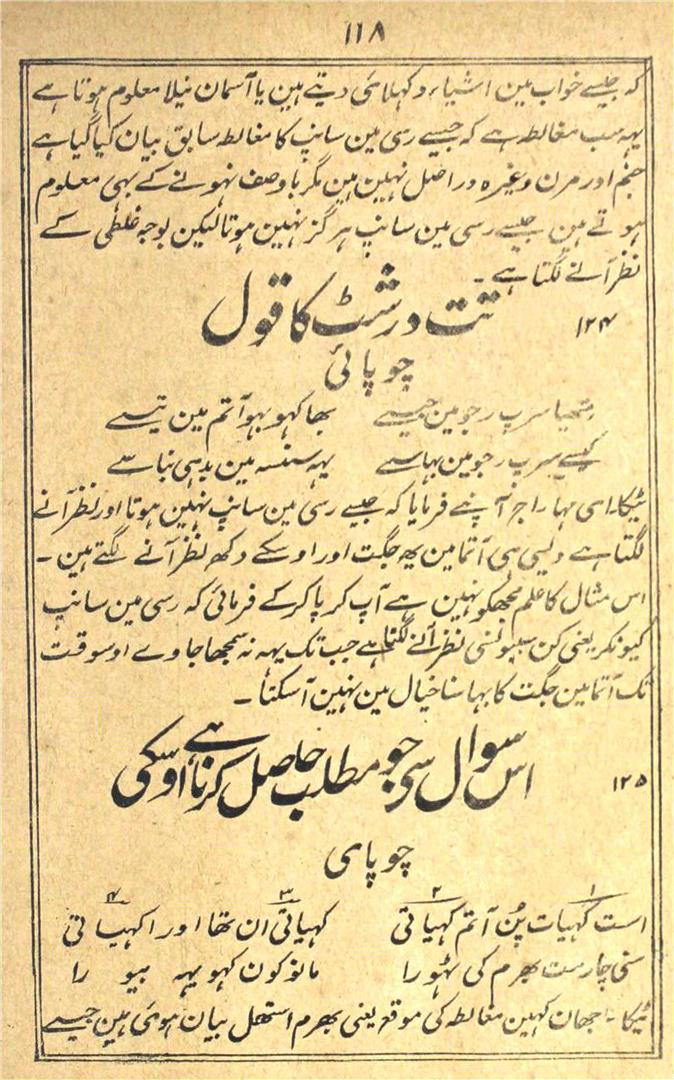 ۱۱۸
کہ جیسے خواب مین اشیاء دکہلائی دیتے ہین یا آسمان نیلا معلوم ہوتا ہے
یہہ سب مغالطہ ہے کہ جیسے رسی مین سانپ کا مغالطہ سابق بیان کیا گیا ہے
جنم اور مرن وغیرہ دراصل نہین ہین مگر باوصف نہونے کے بہی معلوم
ہوتے ہین جیسے رسی مین سانپ ہرگز نہین ہوتا لیکن بوجہ غلطی کے
نظر آنے لگتا ہے ۔
۱۲۴ تت درشٹ کا قول
چوپائی
متھیا سرپ رجو مین جیسے بھاکہو بہو آتم مین تیسے
کیسے سرپ رجو مین بہاسے یہہ سنسہ مین بدہی نباسے
ٹیکا۔ اسی مہاراج آپنے فرمایا کہ جیسے رسی مین سانپ نہین ہوتا اور نظر آنے
لگتا ہے ویسی ہی آتما مین یہہ جگت اور اوسکے دکھ نظر آنے لگتے ہین ۔
اس مثال کا علم مجھکو نہین ہے آپ کرپا کرکے فرمائی کہ رسی مین سانپ
کیونکر یعنی کن سببونسی نظر آنے لگتا ہے جب تک یہہ نہ سمجھا جاوے اوسوقت
تک آتما مین جگت کا بہاسنا خیال مین نہین آسکتا ۔
۱۲۵ اس سوال سی جو مطلب حاصل کرنا ہے اوسکی
چوپای
۱ ۲ ۳ ۴
است کہیات پُن آتم کہیاتی کہیاتی ان تھا اور اکہیاتی
سنی چار مت بھرم کی ٹہورا مانو کون کہو یہہ بیورا
ٹیکا ۔ جہان کہین مغالطہ کی موقعہ یعنی بھرم استھل بیان ہوئی ہین جیسے